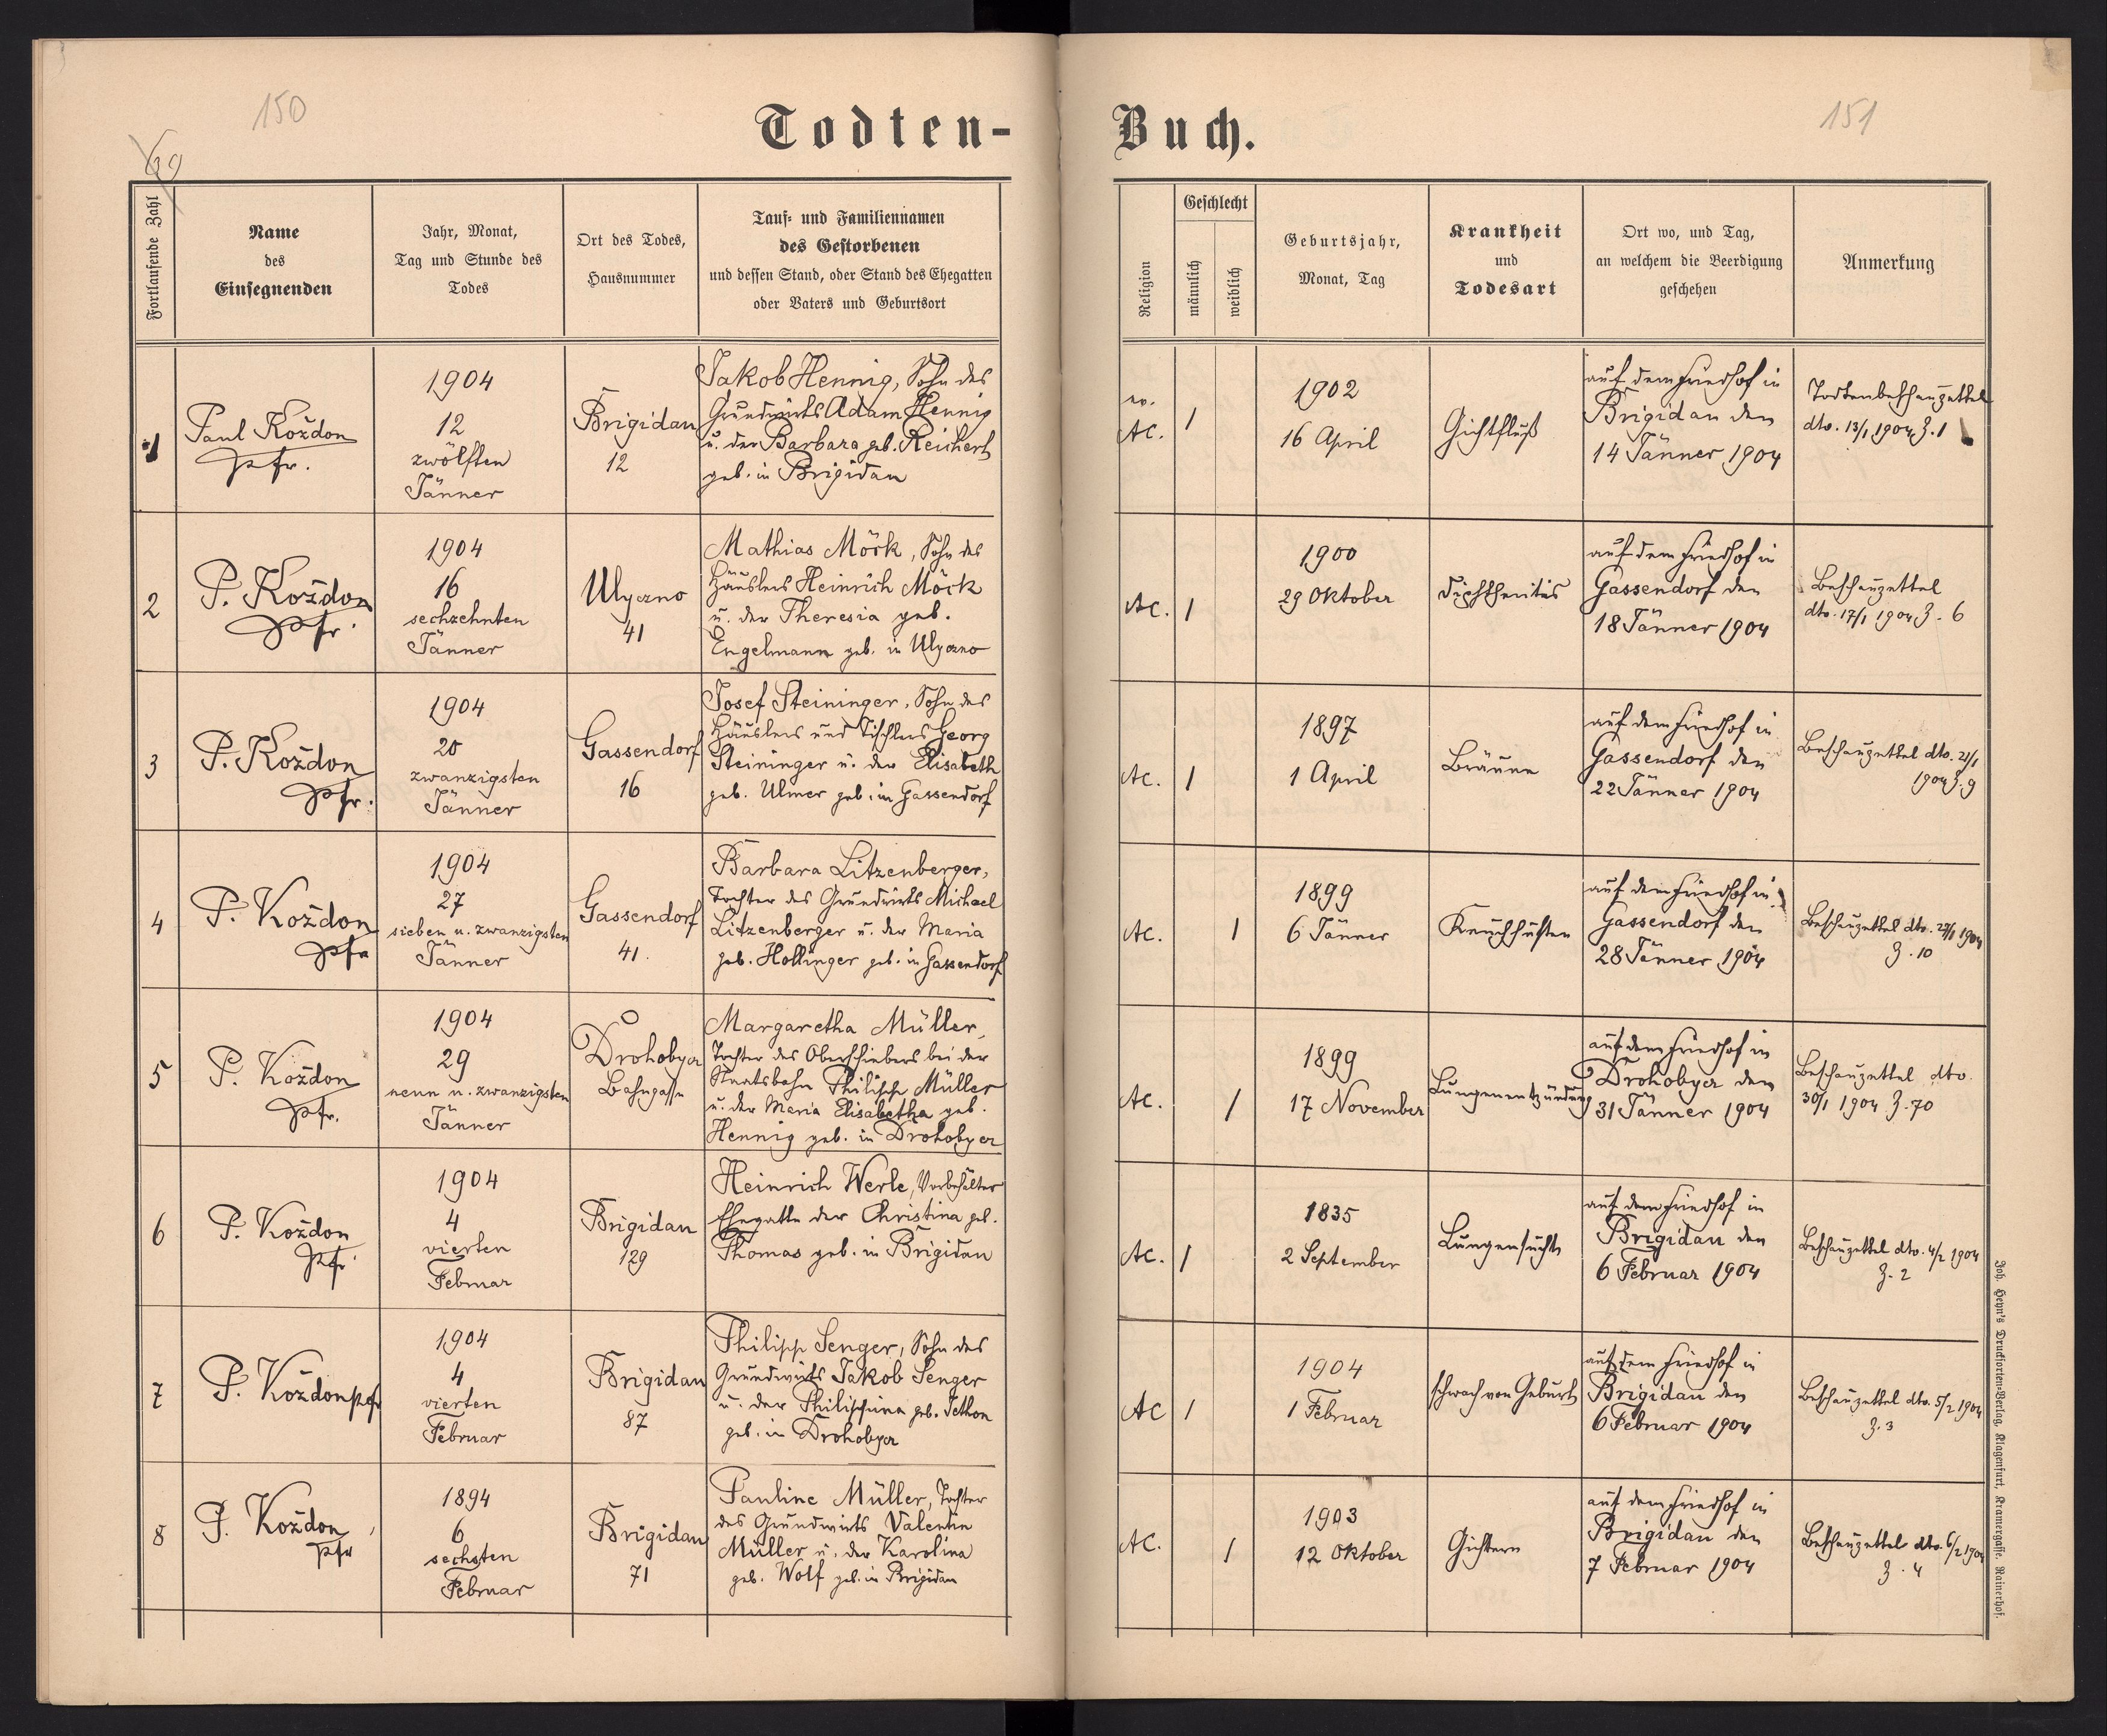 150
69
Todten-
Fortlaufende Zahl
Name
des
Einsegnenden
Jahr, Monat,
Tag und Stunde des
Todes
Ort des Todes,
Hausnummer
Tauf- und Familiennamen
des Gestorbenen
und dessen Stand, oder Stand des Ehegatten
oder Vaters und Geburtsort
1
Paul Koždon
Pfr.
1904
12
zwölften
Jänner
Brigidau
12
Jakob Hennig, Sohn des
Grundwirts Adam Hennig
u. der Barbara geb. Reichert
geb. in Brigidau
2
P. Koždon
Pfr.
1904
16
sechzehnten
Jänner
Ulyczno
41
Mathias Möck, Sohn des
Häuslers Heinrich Möck
u. der Theresia geb.
Engelmann geb. in Ulyczno
3
P. Koždon
Pfr.
1904
20
zwanzigsten
Jänner
Gassendorf
16
Josef Steininger, Sohn des
Häuslers und Tischlers Georg
Steininger u. der Elisabeth
geb. Ulmer geb. in Gassendorf
4
P. Koždon
Pfr
1904
27
sieben u. zwanzigsten
Jänner
Gassendorf
41.
Barbara Litzenberger,
Tochter des Grundwirts Michael
Litzenberger u. der Maria
geb. Hollinger geb. in Gassendorf
5
P. Koždon
Pfr.
1904
29
neun u. zwanzigsten
Jänner
Drohobycz
Bahngasse
Margaretha Müller,
Tochter des Oberschiebers bei der
Staatsbahn Philipp Müller
u. der Maria Elisabetha geb.
Hennig geb. in Drohobycz
6
P. Koždon
Pfr.
1904
4
vierten
Februar
Brigidau
129
Heinrich Werle, Vorbehälter
Ehegatte der Christina geb.
Thomas geb. in Brigidau
7
P. Koždon pfr
1904
4
vierten
Februar
Brigidau
87
Philipp Senger, Sohn des
Grundwirts Jakob Senger
u. der Philippina geb. Jethon
geb. in Drohobycz
8
P. Koždon
pfr
1894
6
sechsten
Februar
Brigidau
71
Pauline Müller, Tochter
des Grundwirts Valentin
Müller u. der Karolina
geb. Wolf geb. in Brigidau
151
Buch.
Religion
Geschlecht
männlich
weiblich
Geburtsjahr,
Monat, Tag
Krankheit
und
Todesart
Ort wo, und Tag,
an welchem die Beerdigung
geschehen
Anmerkung
ev.
AC.
1
1902
16 April
Gichtfluß
auf dem Friedhof in
Brigidau den
14 Jänner 1904
Todtenbeschauzettel
dto. 13/1 1904 Z. 1
AC.
1
1900
29 Oktober
Diphtheritis
auf dem Friedhof in
Gassendorf den
18 Jänner 1904
Beschauzettel
dto. 17/1 1904 Z. 6
AC.
1
1897
1 April
Bräune
auf dem Friedhof in
Gassendorf den
22 Jänner 1904
Beschauzettel dto. 21/1
1904 Z. 9
AC.
1
1899
6 Jänner
Keuchhusten
auf dem Friedhof in
Gassendorf den
28 Jänner 1904
Beschauzettel dto. 1904
Z. 10
AC.
1
1899
17 November
Lungenentzündung
auf dem Friedhof in
Drohobycz den
31 Jänner 1904
Beschauzettel dto.
30/1 1904 Z. 70
AC.
1
1835
2 September
Lungensucht
auf dem Friedhof in
Brigidau den
6 Februar 1904
Beschauzettel dto. 4/2 1904
Z. 2
AC
1
1904
1 Februar
schwach von Geburt
auf dem Friedhof in
Brigidau den
6 Februar 1904
Beschauzettel dto. 5/2 1904
Z. 3
AC.
1
1903
12 Oktober
Gichtern
auf dem Friedhof in
Brigidau den
7 Februar 1904
Beschauzettel dto. 6/2 1904
Z. 4
Joh. Heyn's Drucksorten-Verlag, Klagenfurt, Kramergasse, Rainerhof.